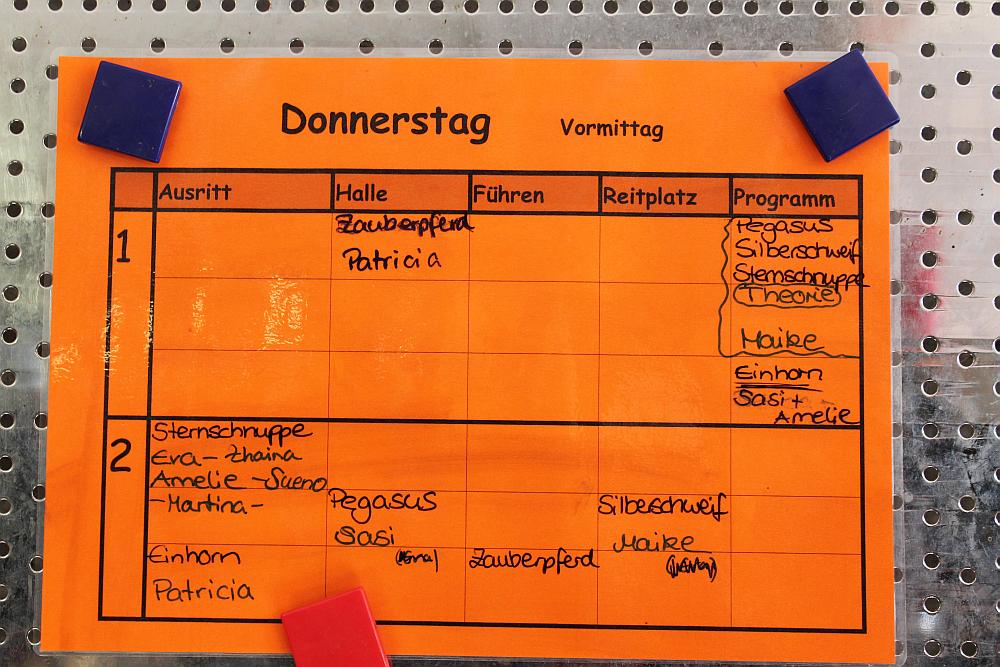 Donnerstag Vormittag
Ausritt Halle Führen Reitplatz Programm
1
Zauberpferd
Patricia
Pegasus
Silberschweif
Sternschnuppe
Theorie
Maike
Einhorn
Sasi +
Amelie
2
Sternschnuppe
Eva - Zhaina
Amelie - Sueno
- Martina -
Einhorn
Patricia
Pegasus
Sasi
Zauberpferd
Silberschweif
Maike